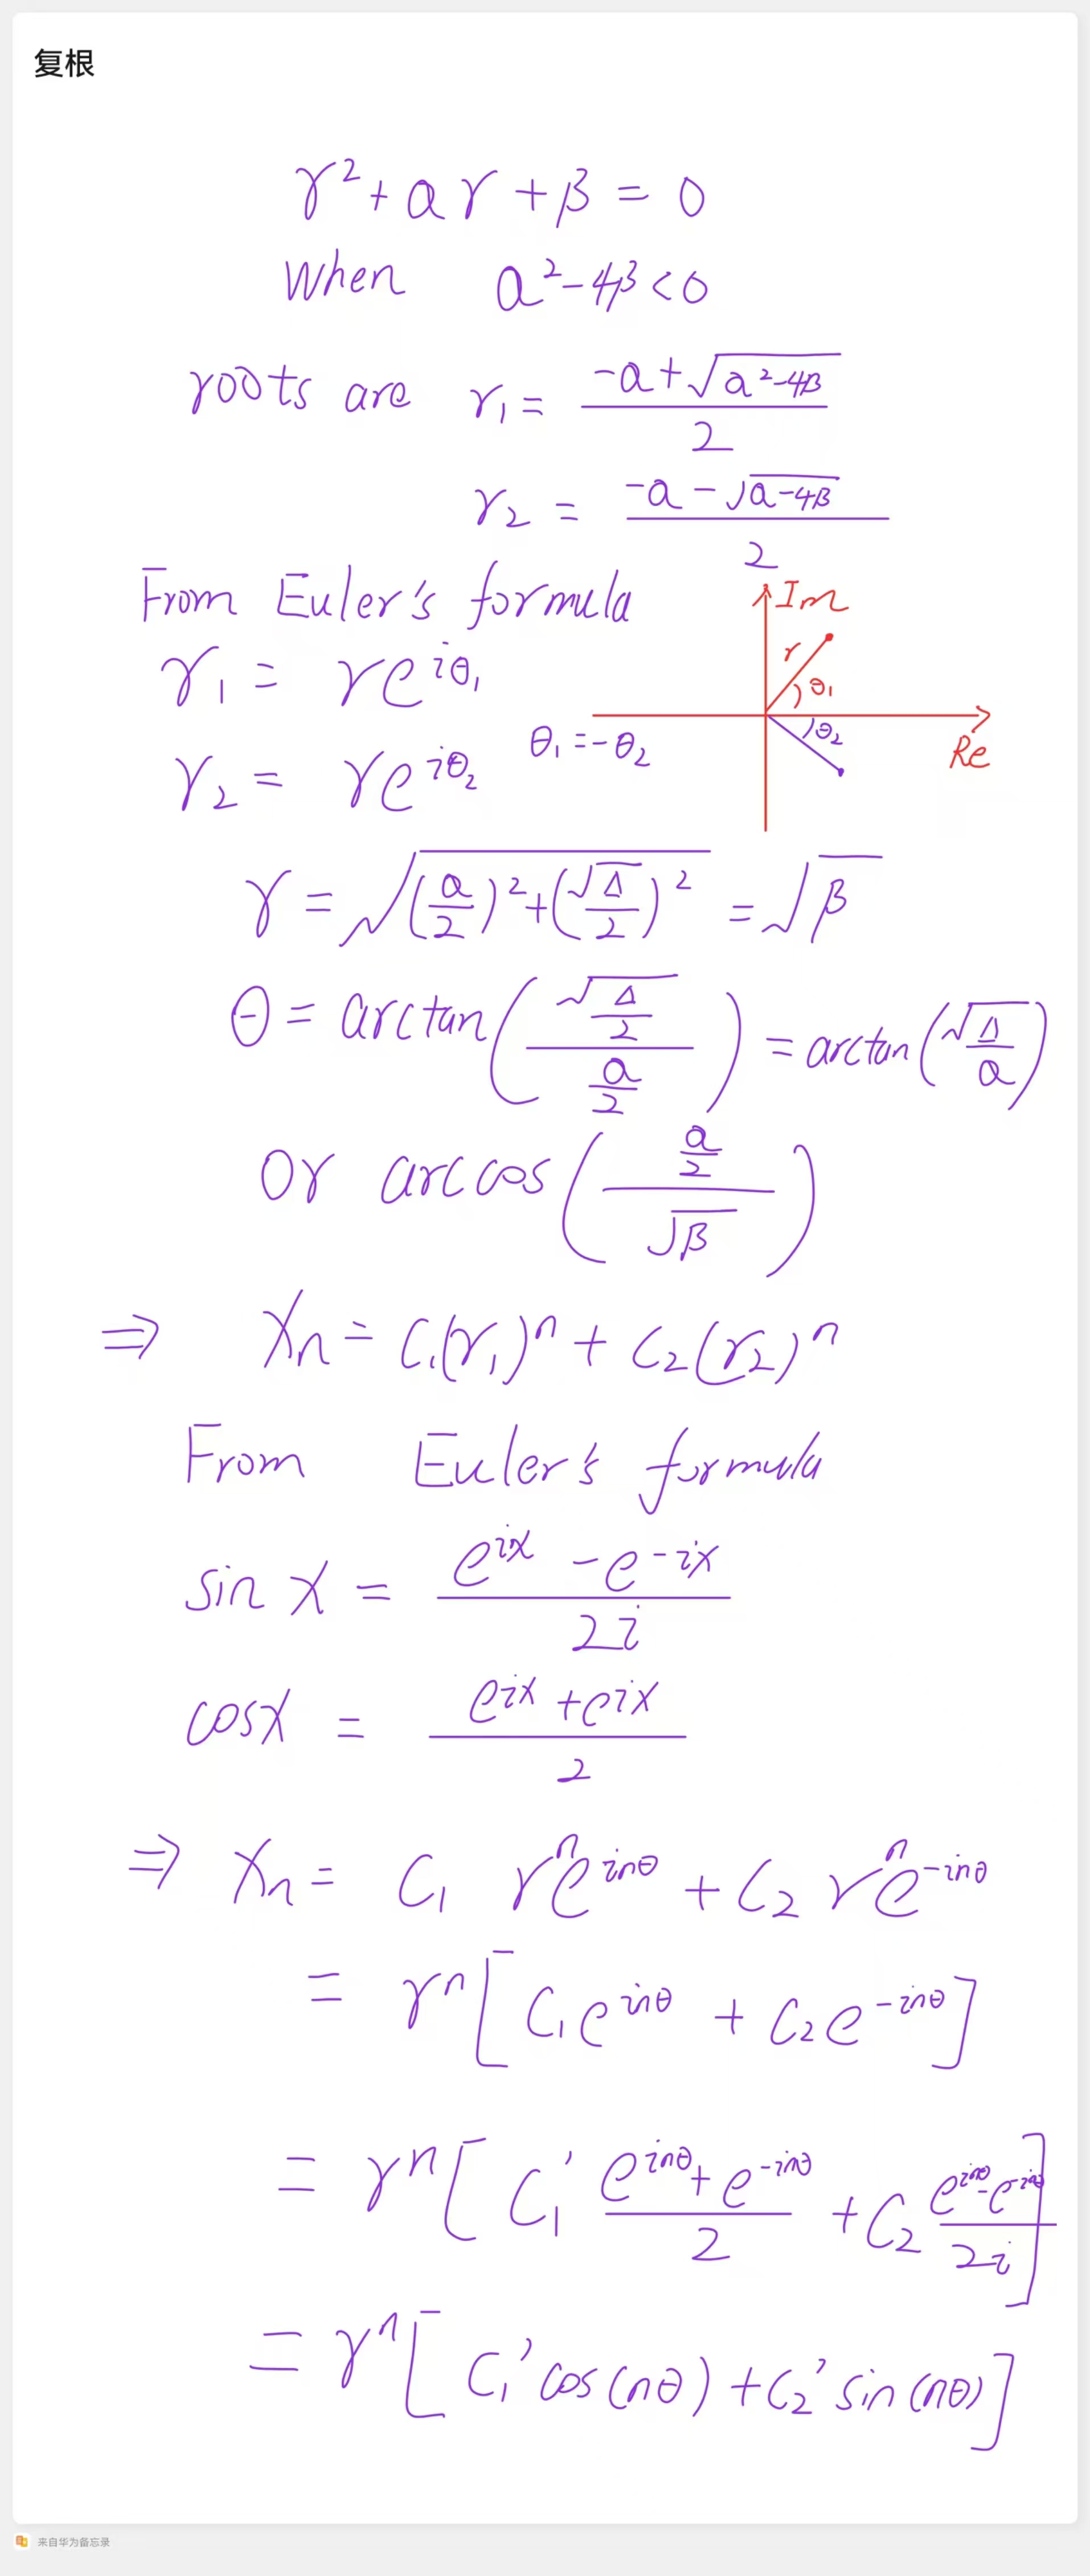 复根
r² + a r + β = 0
When a² - 4β < 0
roots are r₁ = (-a + √(a² - 4β)) / 2
r₂ = (-a - √(a - 4β)) / 2
From Euler's formula
Im
r₁ = re^(iθ₁)
r θ₁
θ₁ = -θ₂
θ₂
Re
r₂ = re^(iθ₂)
r = √((a/2)² + (√Δ/2)²) = √β
θ = arctan((√Δ/2) / (a/2)) = arctan(√Δ/a)
Or arccos((a/2) / √β)
⇒ Xn = C₁(r₁)ⁿ + C₂(r₂)ⁿ
From Euler's formula
sin x = (e^(ix) - e^(-ix)) / 2i
cosx = (e^(ix) + e^(ix)) / 2
⇒ Xn = C₁ rⁿe^(inθ) + C₂ rⁿe^(-inθ)
= rⁿ[C₁e^(inθ) + C₂e^(-inθ)]
= rⁿ[C₁' (e^(inθ) + e^(-inθ)) / 2 + C₂ (e^(inθ) - e^(-inθ)) / 2i]
= rⁿ[C₁' cos(nθ) + C₂' sin(nθ)]
来自华为备忘录